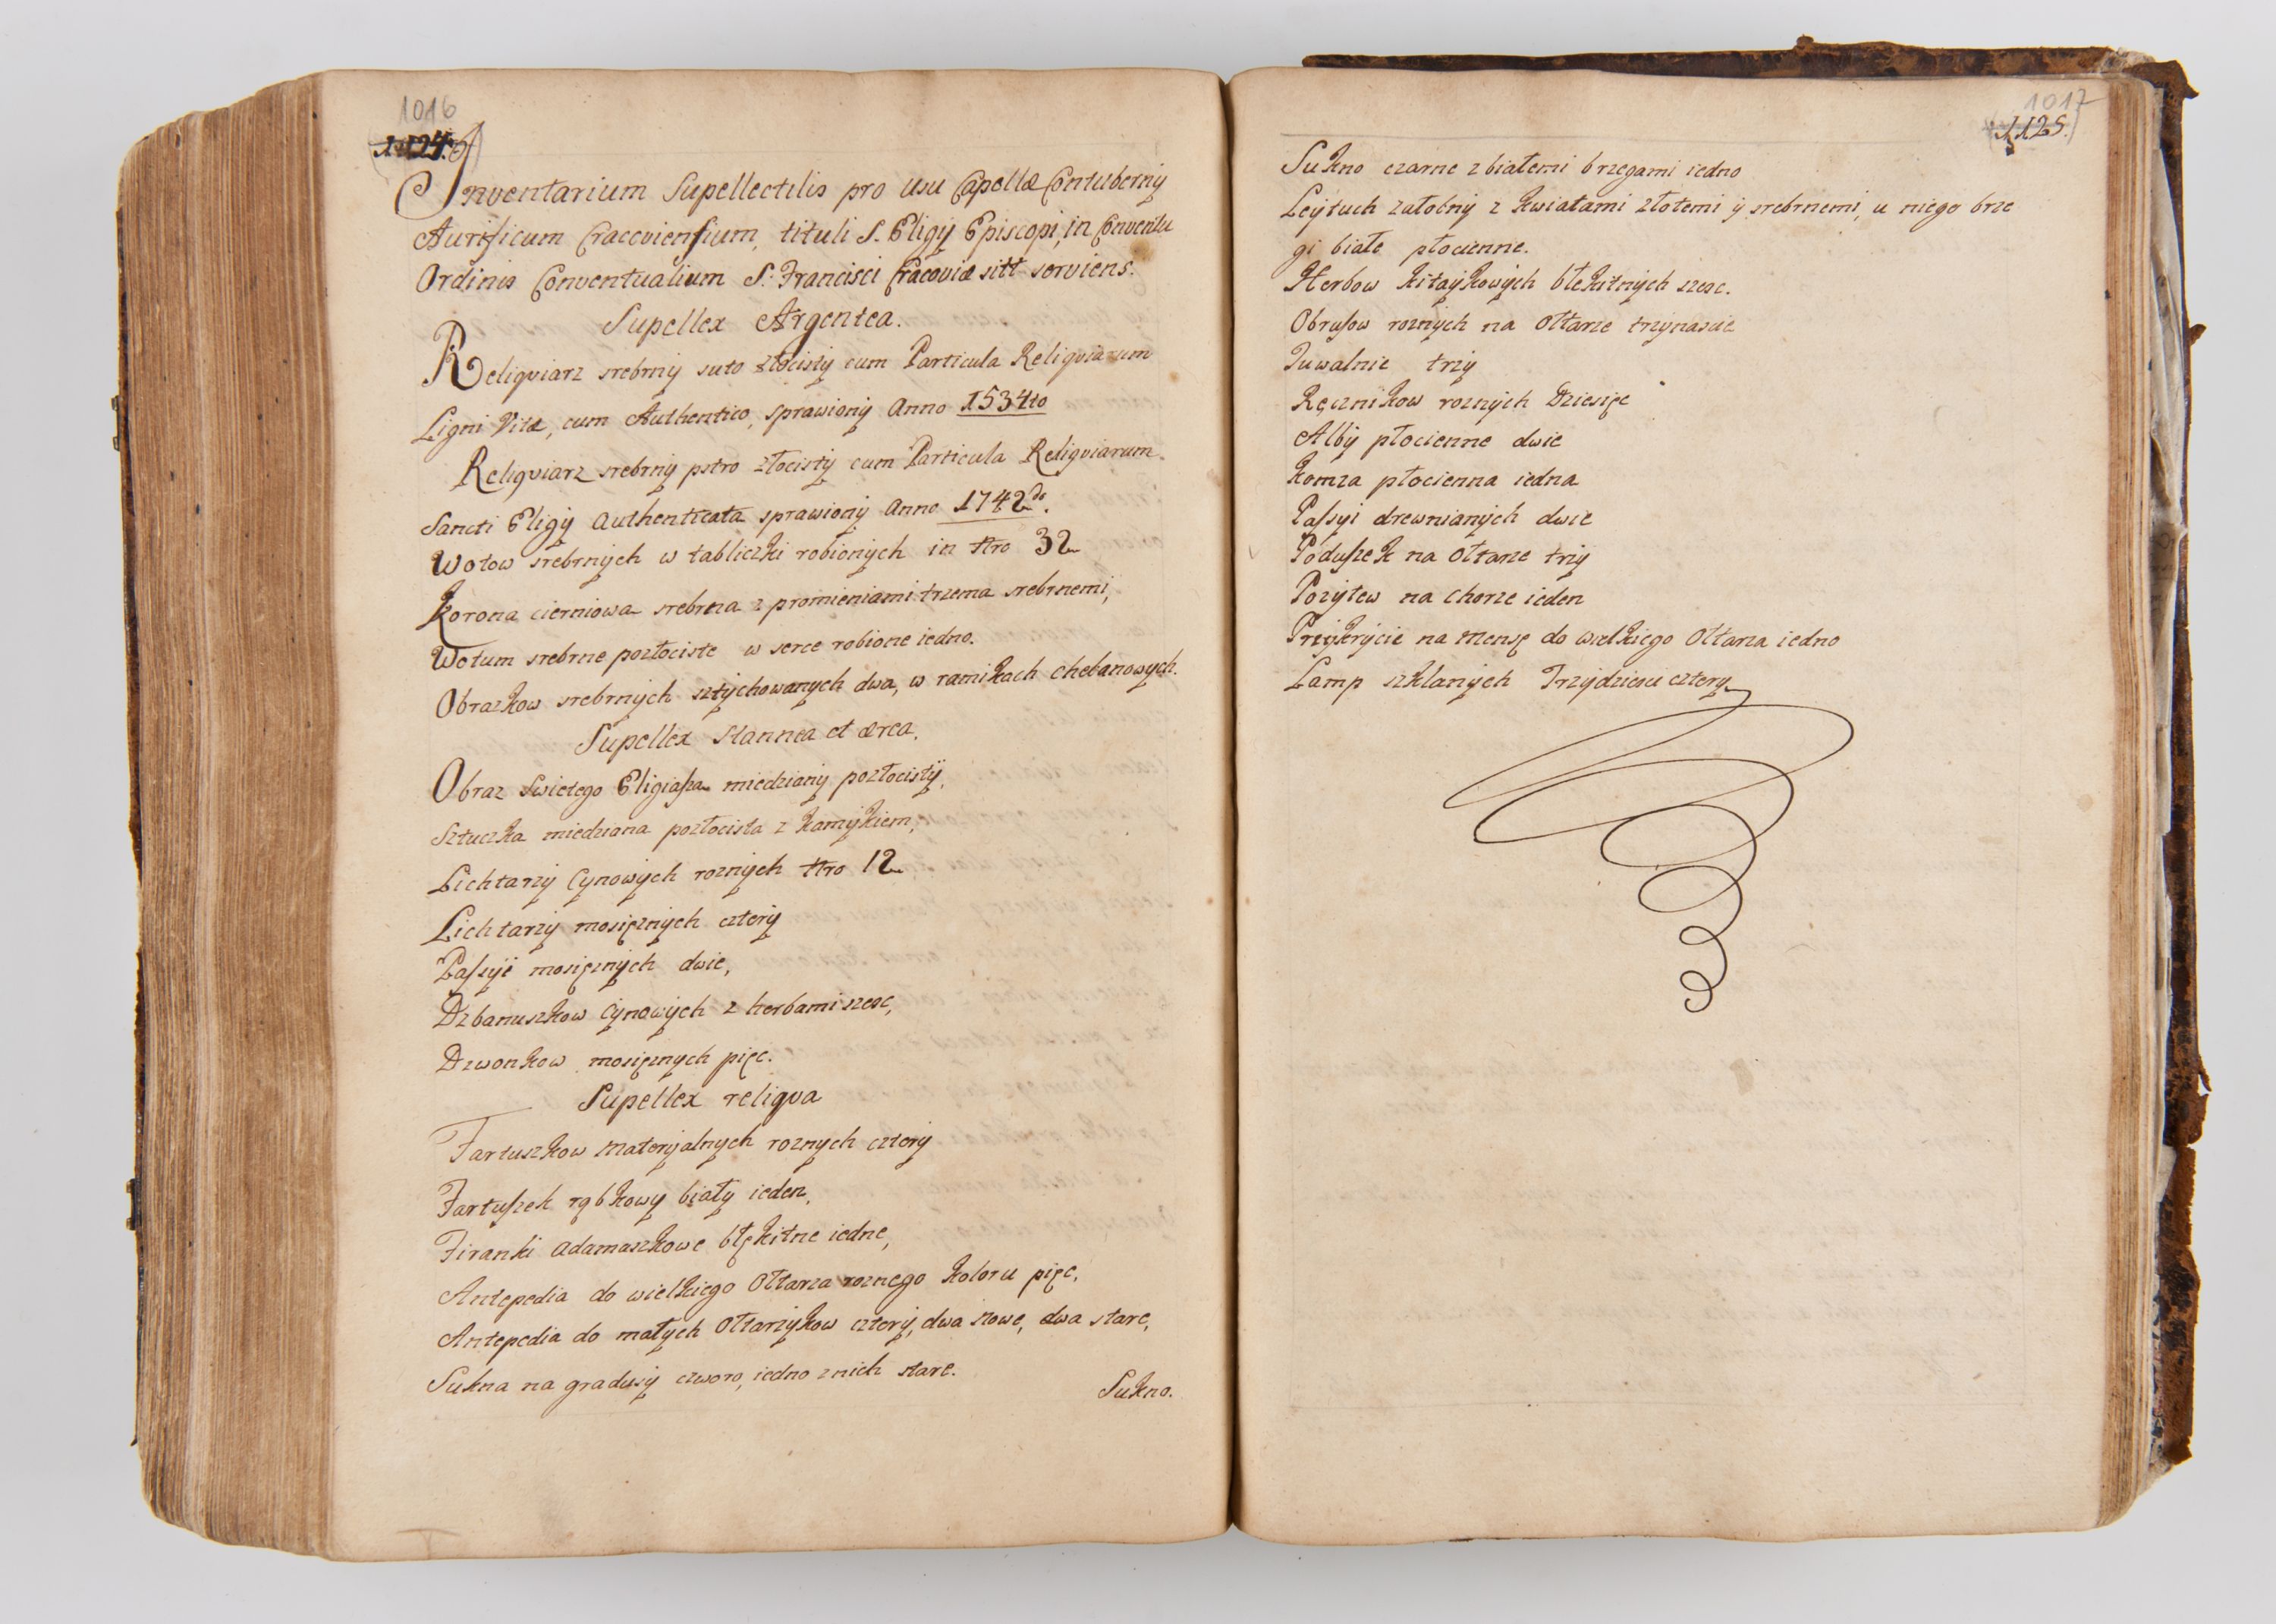 1016
1124.
Inventarium Supellectilis pro usu Capellæ Contubernÿ
Aurificum Cracoviensium, tituli S. Eligÿ Episcopi, in Conventu
Ordinis Conventualium S. Francisci Cracoviæ sitt serviens.
Supellex Argentea.
Reliqviarz srebrnÿ suto złocistÿ cum Particula Reliqviarum
Ligni Vitæ, cum Authentico, sprawionÿ Anno 1534to
Reliqviarz srebrnÿ pstro złocistÿ cum Particula Reliqviarum
Sancti Eligÿ Authenticata sprawionÿ Anno 1742do.
Wotow srebrnÿch w tabliczki robionÿch in Nro 32
Korona cierniowa srebrna z promieniami trzema srebrnemi,
Wotum srebrne pozłociste w serce robione iedno.
Obrazkow srebrnÿch sztÿchowanÿch dwa, w ramikach chebanowÿch.
Supellex Stannea et ærea.
Obraz Swietego Eligiaſza miedzianÿ pozłocistÿ,
Sztuczka miedziana pozłocista z kamÿkiem,
Lichtarzÿ Cÿnowÿch roznÿch Nro 12
Lichtarzÿ mosięznÿch czterÿ
Paſsÿi mosięznÿch dwie,
Dzbanuszkow Cÿnowÿch z herbami szesc,
Dzwonkow mosięznych pięc.
Supellex reliqva
Fartuszkow Materÿalnÿch roznÿch czterÿ
Fartuſzek rąbkowÿ białÿ ieden,
Firanki Adamaszkowe błękitne iedne,
Antepedia do wielkiego Ołtarza roznego koloru pięc,
Antepedia do małÿch Ołtarzÿkow czterÿ, dwa nowe, dwa stare,
Sukna na gradusÿ czworo, iedno z nich stare.
Sukno.
1017
1125.
Sukno czarne z białemi brzegami iedno
Leÿtuch załobnÿ z kwiatami złotemi ÿ srebrnemi, u niego brze
gi białe płocienne.
Herbow kitaÿkowÿch błekitnÿch szesc.
Obruſow roznÿch na Ołtarze trzÿnascie
Tuwalnie trzÿ
Ręcznikow roznÿch Dziesięc
Albÿ płocienne dwie
Komza płocienna iedna
Paſsÿi drewnianÿch dwie
Poduſzek na Ołtarze trzÿ
Pozÿtew na Chorze ieden
Przÿkrÿcie na Mensę do wielkiego Ołtarza iedno
Lamp szklanÿch Trzÿdziesci czterÿ